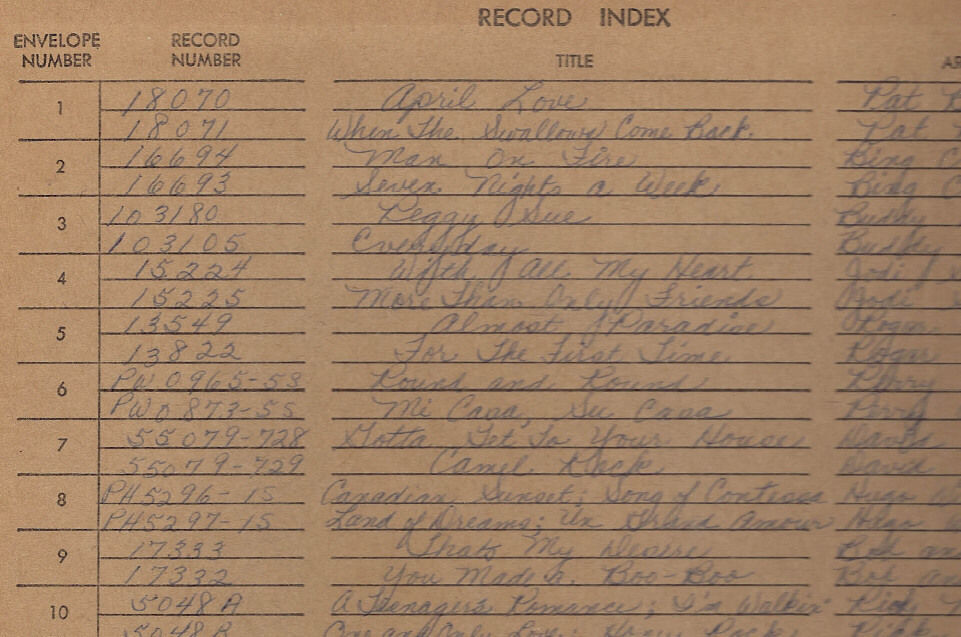 RECORD INDEX
ENVELOPE NUMBER RECORD NUMBER TITLE AR
1 18070 April Love Pat B
18071 When The Swallows Come Back Pat
2 16694 Man On Fire Bing C
16693 Seven Nights a Week Bing C
3 103180 Peggy Sue Buddy
103105 Everyday Buddy
4 15224 With All My Heart Jodi S
15225 More Than Only Friends Jodi
5 13549 Almost Paradise Roger
13822 For The First Time Roger
6 PW0965-5S Round and Round Perry
PW0873-5S Mi Casa, Su Casa Perry
7 55079-728 Gotta Get To Your House David
55079-729 Camel Rock David
8 PH5296-1S Canadian Sunset; Song of Contessa Hugo W
PH5297-1S Land of Dreams; Un Grand Amour Hugo W
9 17333 Thats My Desire Bob an
17332 You Made A Boo-Boo Bob an
10 5048A A Teenager's Romance; I'm Walkin' Ricky N
5048B One and Only Love; Honey Rock Rick